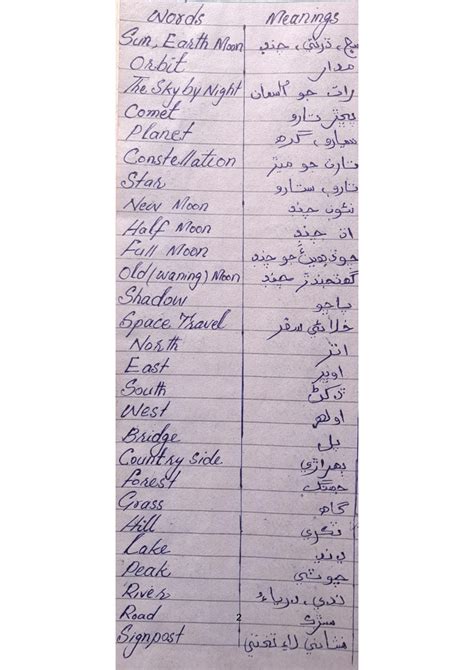 Words Meanings
Sun, Earth Moon سج، ڌرتي، چنڊ
Orbit مدار
The Sky by Night رات جو آسمان
Comet پڇڙ تارو
Planet سيارو، گرهه
Constellation تارن جو ميڙ
Star تارو، ستارو
New Moon نئون چنڊ
Half Moon اڌ چنڊ
Full Moon چوڏهينءَ جو چنڊ
Old (waning) Moon گهٽجندڙ چنڊ
Shadow پاڇو
Space Travel خلائي سفر
North اتر
East اوڀر
South ڏکڻ
West اولهه
Bridge پل
Country Side ٻهراڙي
Forest جهنگ
Grass گاهه
Hill ٽڪري
Lake ڍنڍ
Peak چوٽي
River ندي، درياءُ
Road 2 سڙڪ
Signpost لاءِ تختي